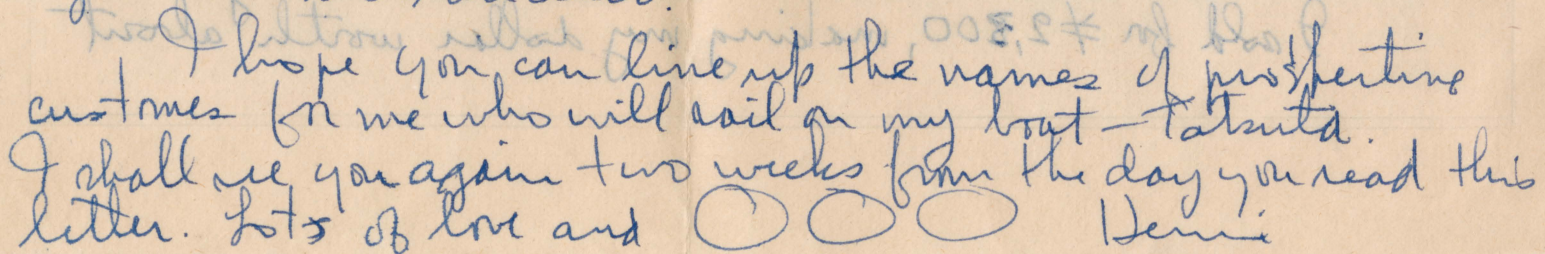 I hope you can line up the names of prospective
customes for me who will sail on my boat – Tatsuta.
I shall see you again two weeks from the day you read this
letter. Lots of love and O O O Henri